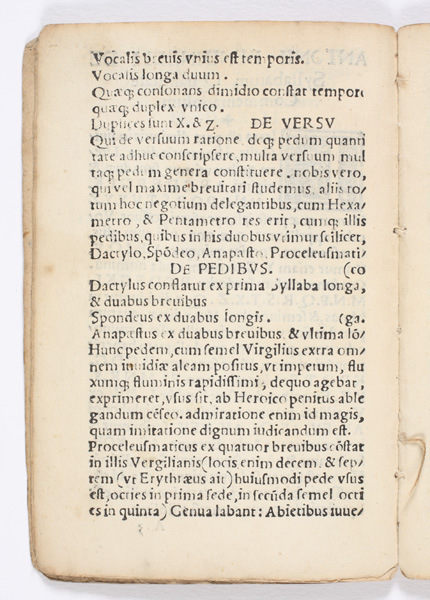 Vocalis breuis vnius est temporis.
Vocalis longa duum.
Quæq; consonans dimidio constat tempore
quæq; duplex vnico.
Duplices sunt X. & Z. DE VERSV
Qui de versuum ratione, deq; pedum quanti
tate adhuc conscripsere, multa versuum mul
taq; pedum genera constituere. nobis vero,
qui vel maxime breuitati studemus, aliis to/
tum hoc negotium delegantibus, cum Hexa/
metro, & Pentametro res erit, cumq; illis
pedibus, quibus in his duobus vtimur scilicet,
Dactylo, Spōdeo, Anapæsto, Proceleusmati/
DE PEDIBVS. (co
Dactylus constatur ex prima Syllaba longa,
& duabus breuibus
Spondeus ex duabus longis. (ga.
Anapæstus ex duabus breuibus & vltima lō/
Hunc pedem, cum semel Virgilius extra om/
nem inuidiæ aleam positus, vt impetum, flu
xumq; fluminis rapidissimi, de quo agebat,
exprimeret, vsus sit, ab Heroico penitus able
gandum cēseo. admiratione enim id magis,
quam imitatione dignum iudicandum est.
Proceleusmaticus ex quatuor breuibus cōstat
in illis Vergilianis (locis enim decem & sep/
tem (vt Erythræus ait) huiusmodi pede vsus
est, octies in prima sede, in secūda semel octi
es in quinta) Genua labant: Abietibus iuue/